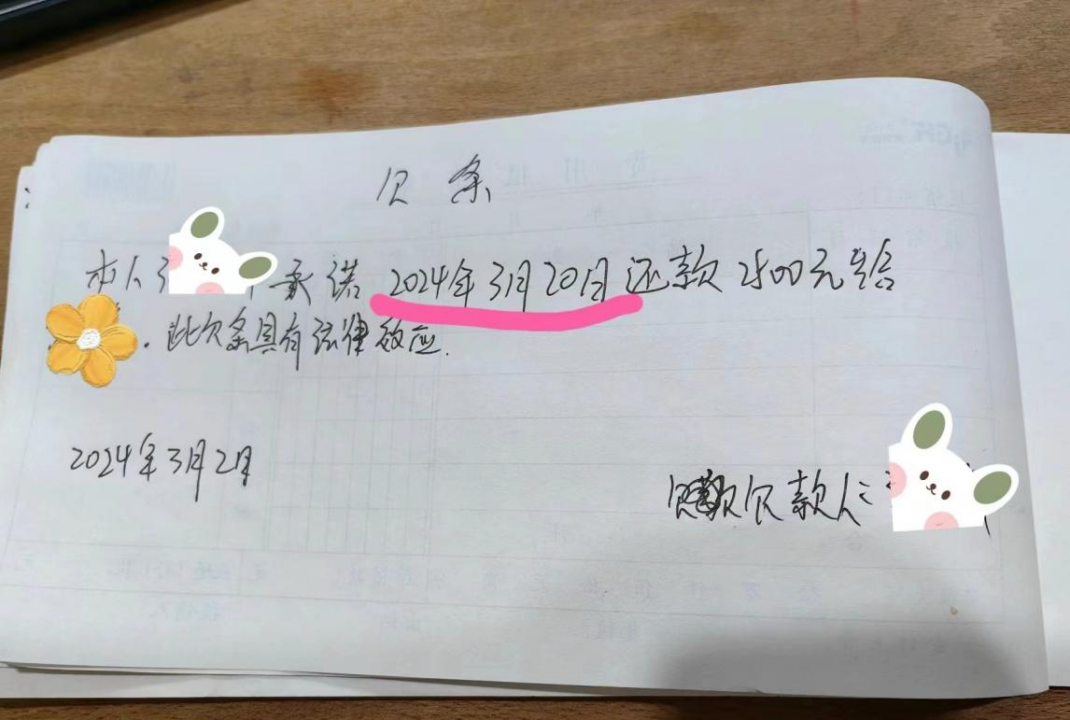 欠条
本人 承诺 2024年3月20日还款2500元给
. 此欠条具有法律效应.
2024年3月2日
欠款人: